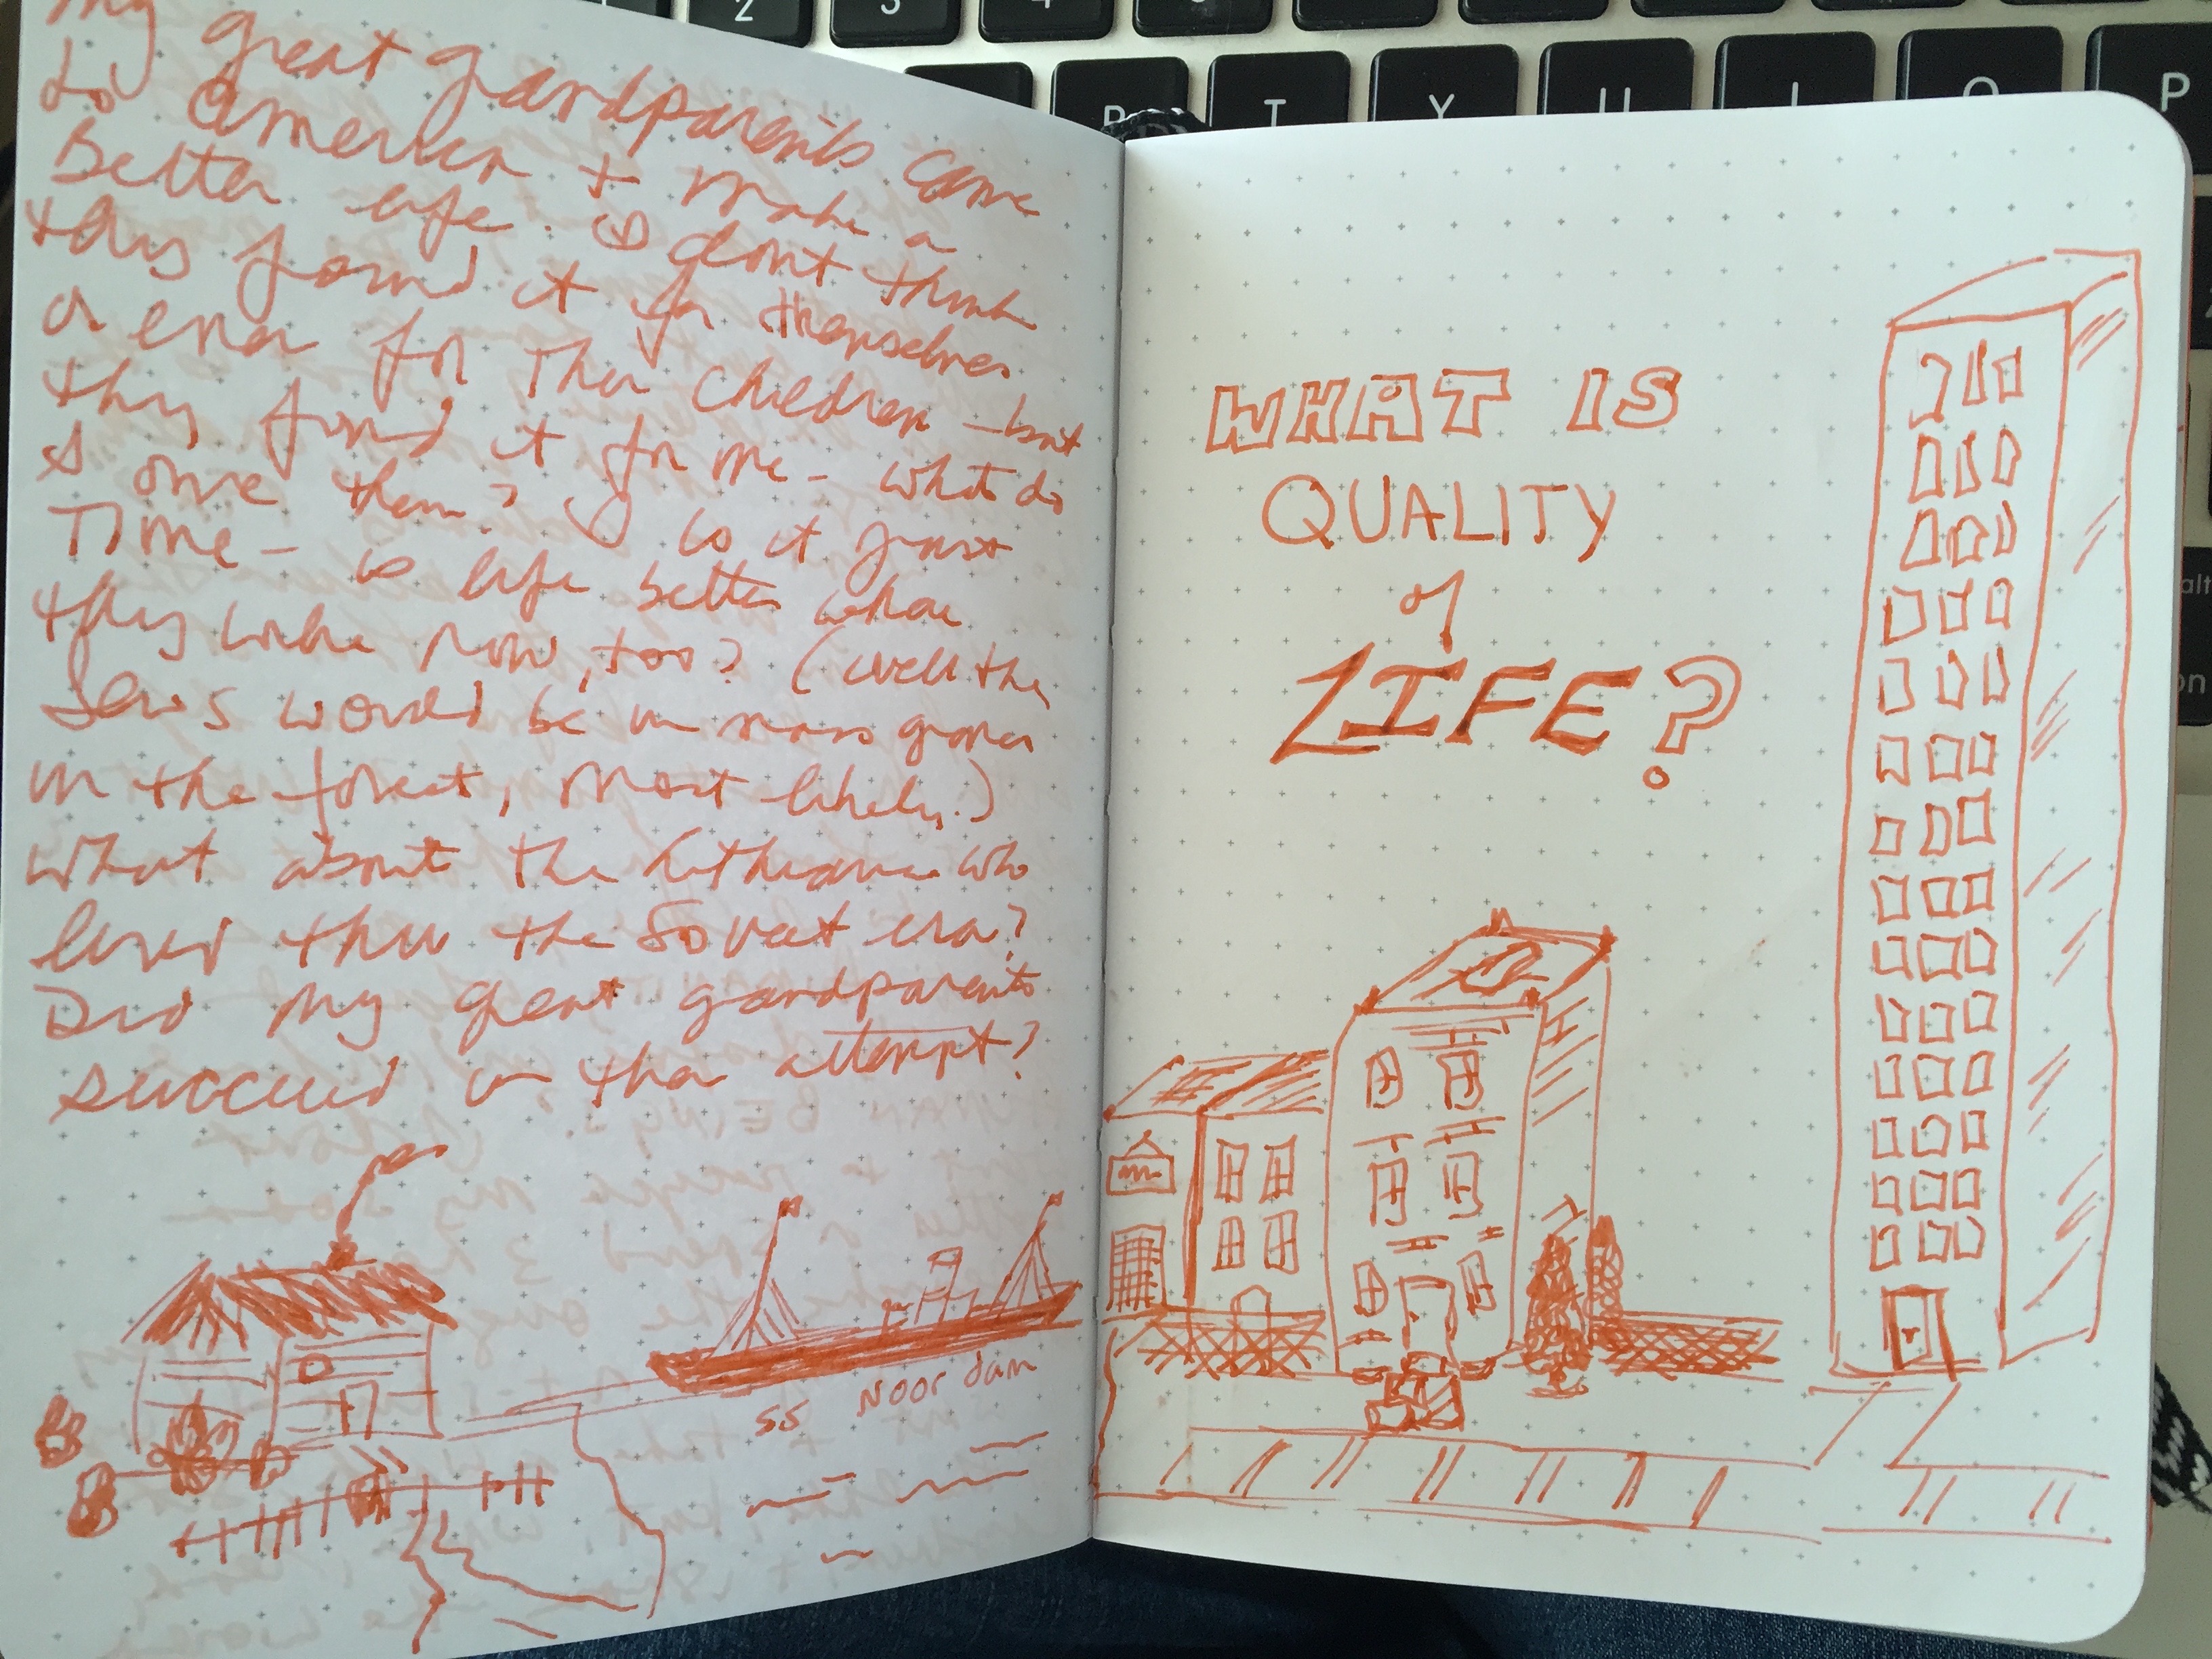 My great grandparents came
to America to make a
Better life. I dont think
they found it for themselves
or even for their children - but
they found it for me - what do
I owe them? Is it just
Time - is life better where
they were now, too? (well the
Jews would be in mass graves
in the forest, most likely.)
What about the Lithuanians who
lived thru the Soviet era?
Did my great grandparents
succeed in their attempt?
SS Noordam
WHAT IS
QUALITY
of
LIFE?
2
3
4
R
T
Y
U
I
O
P
alt